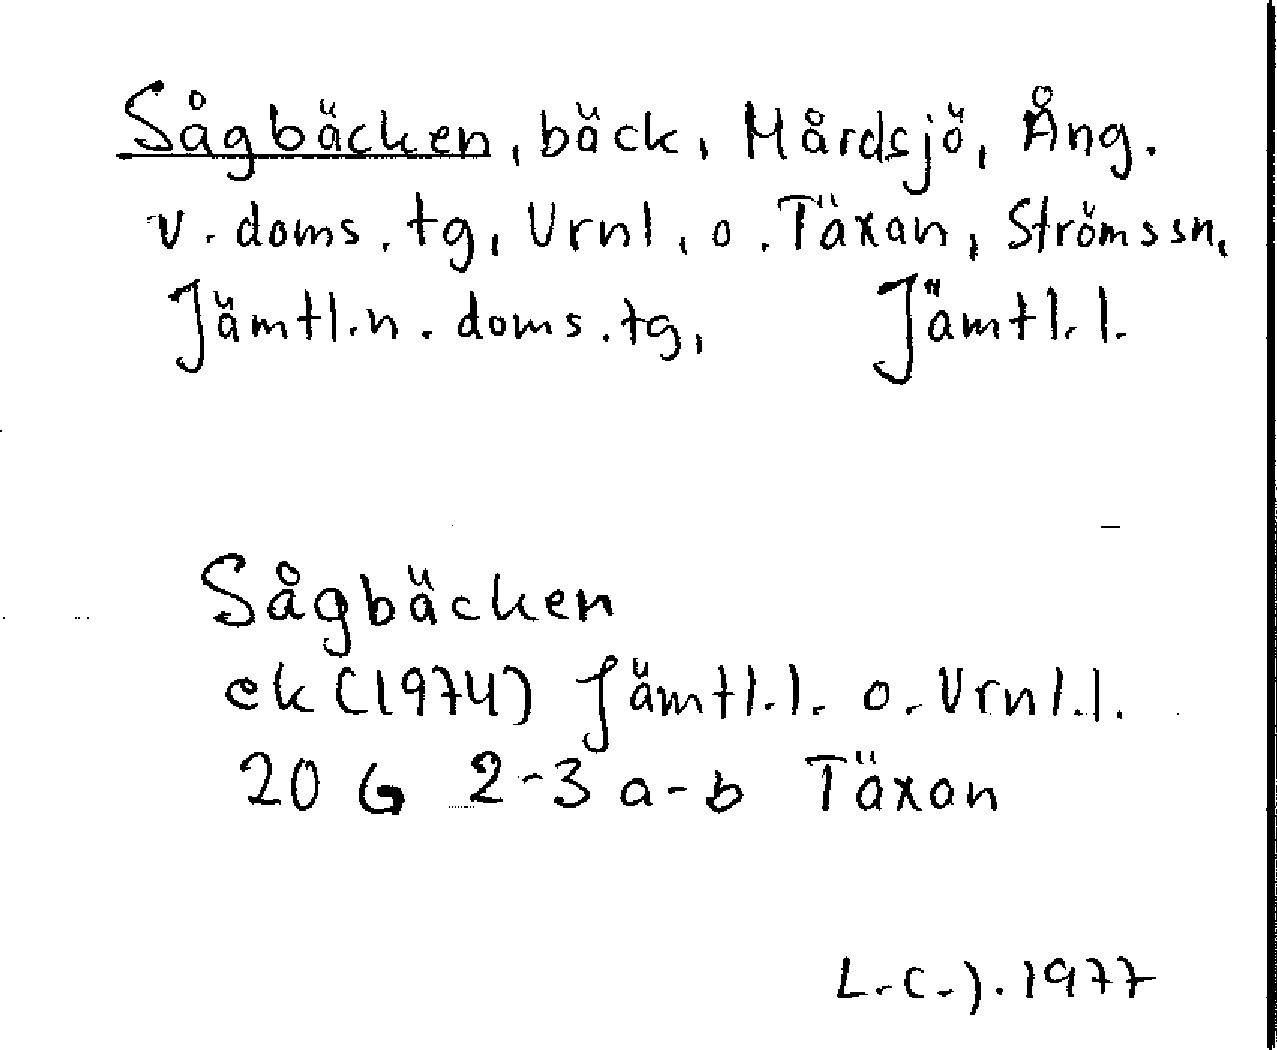 Sågbäcken, bäck, Mårdsjö, Ång.
v. doms. tg, Vrnl, o. Täxan, Strömssn,
Jämtl.n. doms.tg, Jämtl.l.
Sågbäcken
ek (1974) Jämtl.l. o. Vrnl.l.
20 G 2-3 a-b Täxan
L.C.J. 1977